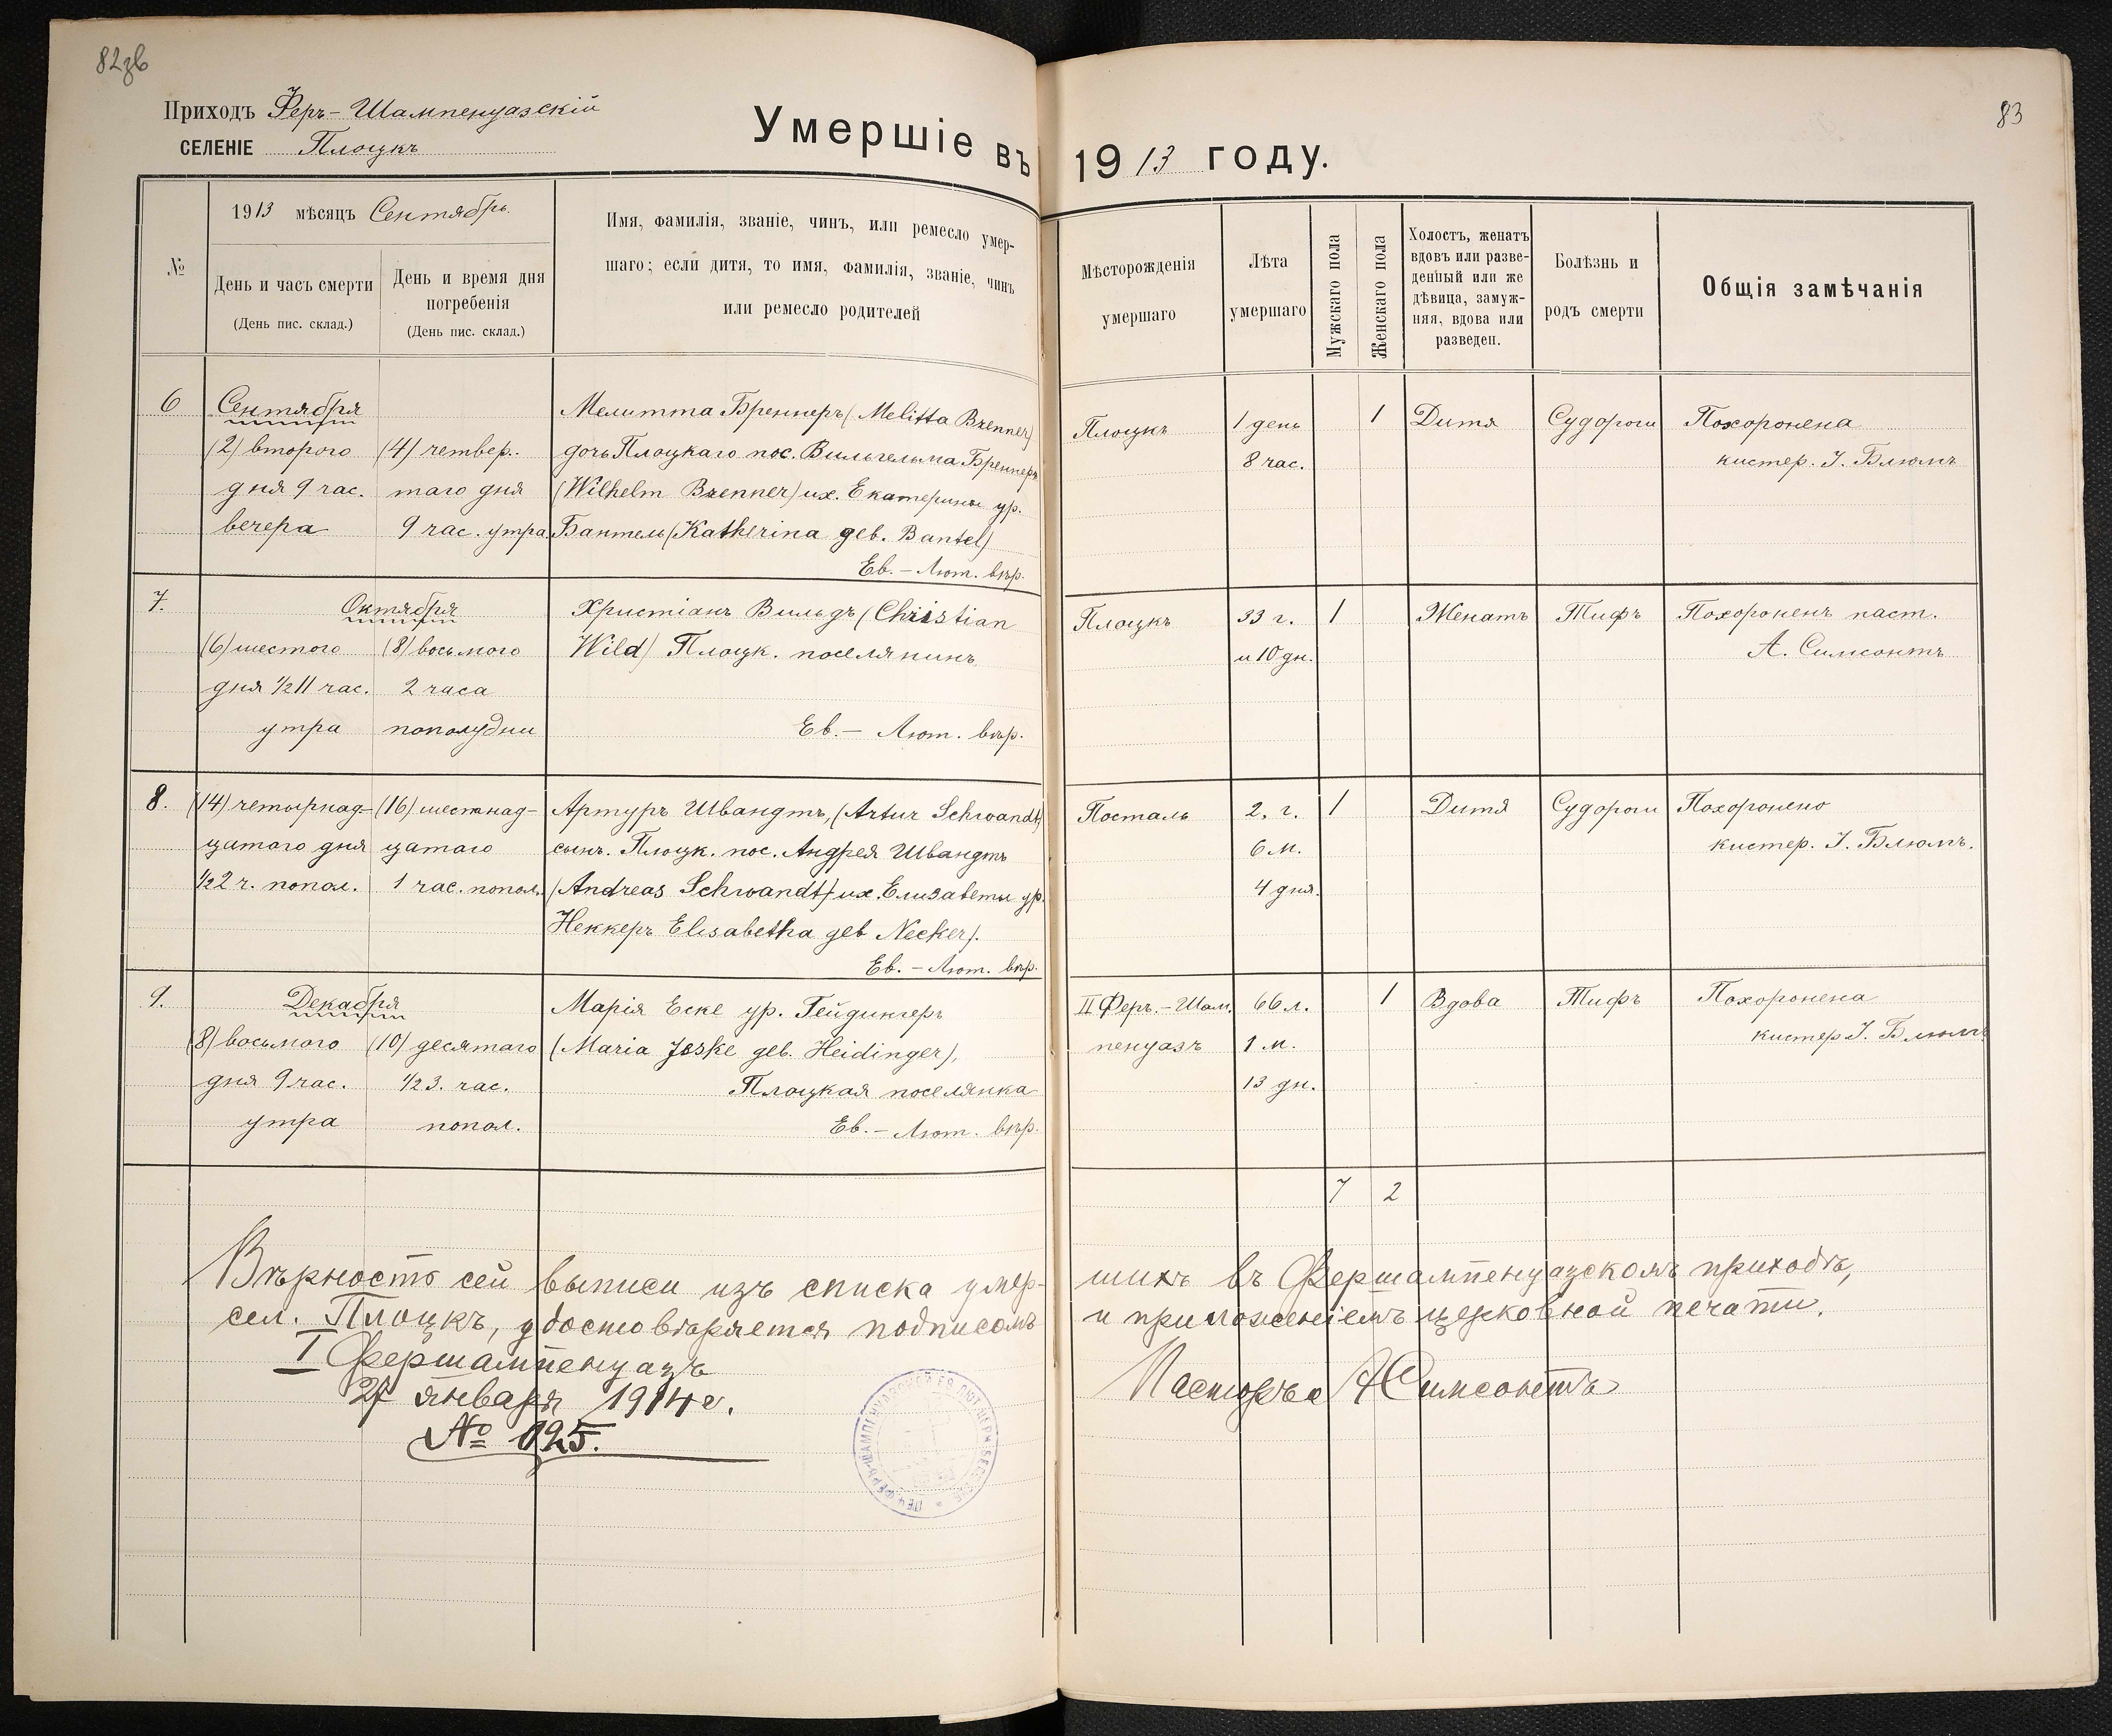 82зв
83
Приходъ Феръ-Шампенуазскій
СЕЛЕНІЕ Плоцкъ
Умершіе въ 1913 году.
№
1913 мѣсяцъ Сентябрь.
День и часъ смерти
(День пис. склад.)
День и время дня
погребенія
(День пис. склад.)
Имя, фамилія, званіе, чинъ, или ремесло умер-
шаго; если дитя, то имя, фамилія, званіе, чинъ
или ремесло родителей
Мѣсторожденія
умершаго
Лѣта
умершаго
Мужскаго пола
Женскаго пола
Холостъ, женатъ
вдовъ или разве-
денный или же
дѣвица, замуж-
няя, вдова или
разведен.
Болѣзнь и
родъ смерти
Общія замѣчанія
6
Сентября
(2) второго
дня 9 час.
вечера
(4) четвер.
таго дня
9 час. утра
Мелитта Бреннеръ (Melitta Brenner)
дочь Плоцкаго пос. Вильгельма Бреннеръ
(Wilhelm Brenner) их. Екатерины ур.
Бантель (Katherina geb. Bantel)
Ев. - Лют. вѣр.
Плоцкъ
1 день
8 час.
1
Дитя
Судороги
Похоронена
кистер. І. Блюмъ
7.
Октября
(6) шестого
дня ½11 час.
утра
(8) восьмого
2 часа
пополудни
Христіанъ Вильдъ (Christian
Wild) Плоцк. поселянинъ
Ев. - Лют. вѣр.
Плоцкъ
33 г.
и 10 дн.
1
Женатъ
Тифъ
Похороненъ паст.
А. Симсонтъ
8.
(14) четырнад-
цатаго дня
½2 ч. попол.
(16) шестнад-
цатаго
1 час. попол.
Артуръ Швандтъ, (Artur Schwandt)
сынъ. Плоцк. пос. Андрея Швандтъ
(Andreas Schwandt) их. Елизаветы ур.
Неккеръ Elisabetha geb Necker).
Ев. - Лют. вѣр.
Посталь
2. г.
6 м.
4 дня.
1
Дитя
Судороги
Похоронено
кистер. І. Блюмъ.
9.
Декабря
(8) восьмого
дня 9 час.
утра
(10) десятаго
½3. час.
попол.
Марія Еске ур. Гейдингеръ
(Maria Jeske geb. Heidinger),
Плоцкая поселянка
Ев. - Лют. вѣр.
II Феръ.-Шам.
пенуазъ
66 л.
1 м.
13 дн.
1
Вдова
Тифъ
Похоронена
кистер І. Блюмъ
7 2
Вѣрность сей выписи изъ списка умер- шихъ въ Фершампенуазскомъ приходѣ,
сел. Плоцкъ, удостовѣряется подписомъ и приложеніемъ церковной печати.
I Фершампенуазъ
27 января 1914 г.
№ 125.
Пасторъ А Симсонтъ